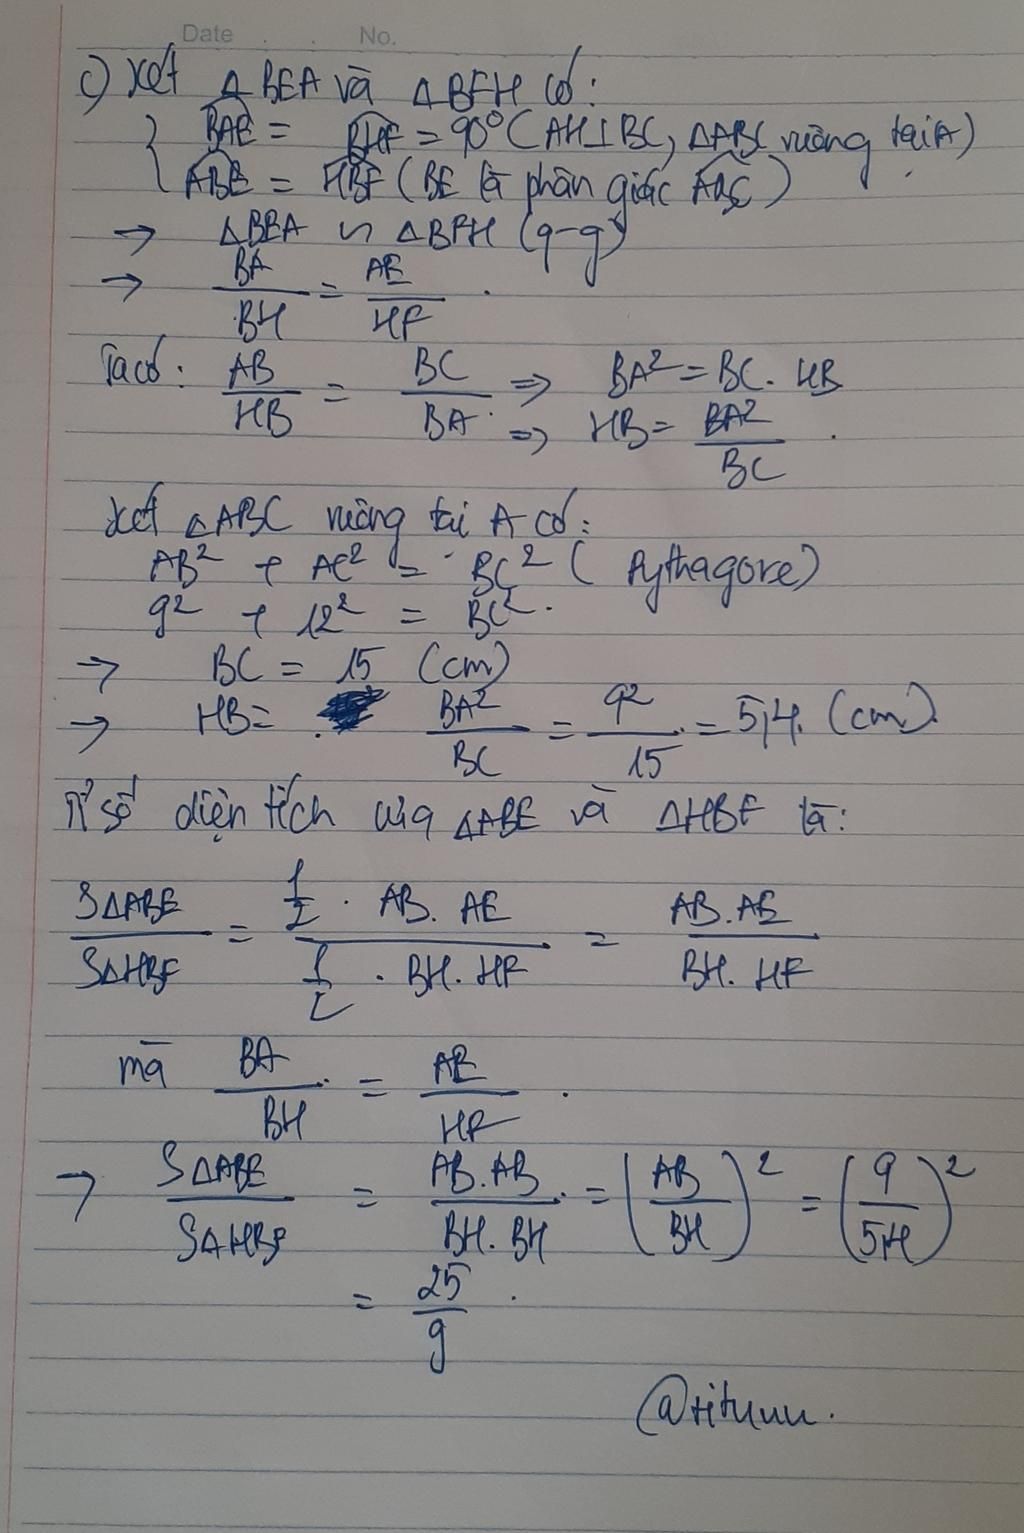 Date . . No.
c) Xét △BEA và △BFH có:
{ BAE = BHF = 90° (AH⊥BC, △ABC vuông tại A)
ABE = HBF (BE là phân giác ABC)
→ △BEA ∽ △BFH (g-g)
→ BA/BH = AE/HF .
Ta có: AB/HB = BC/BA ⇒ BA² = BC. HB
⇒ HB = BA²/BC .
Xét △ABC vuông tại A có:
AB² + AC² = BC² (Pythagore)
9² + 12² = BC².
→ BC = 15 (cm)
→ HB = BA²/BC = 9²/15 = 5,4. (cm).
Tỉ số diện tích của △ABE và △HBF là:
S△ABE/S△HBF = (1/2 . AB. AE)/(1/2 . BH. HF) = AB. AE/BH. HF
mà BA/BH = AE/HF .
→ S△ABE/S△HBF = AB. AB/BH. BH = (AB/BH)² = (9/5,4)²
= 25/9 .
@tituuu.